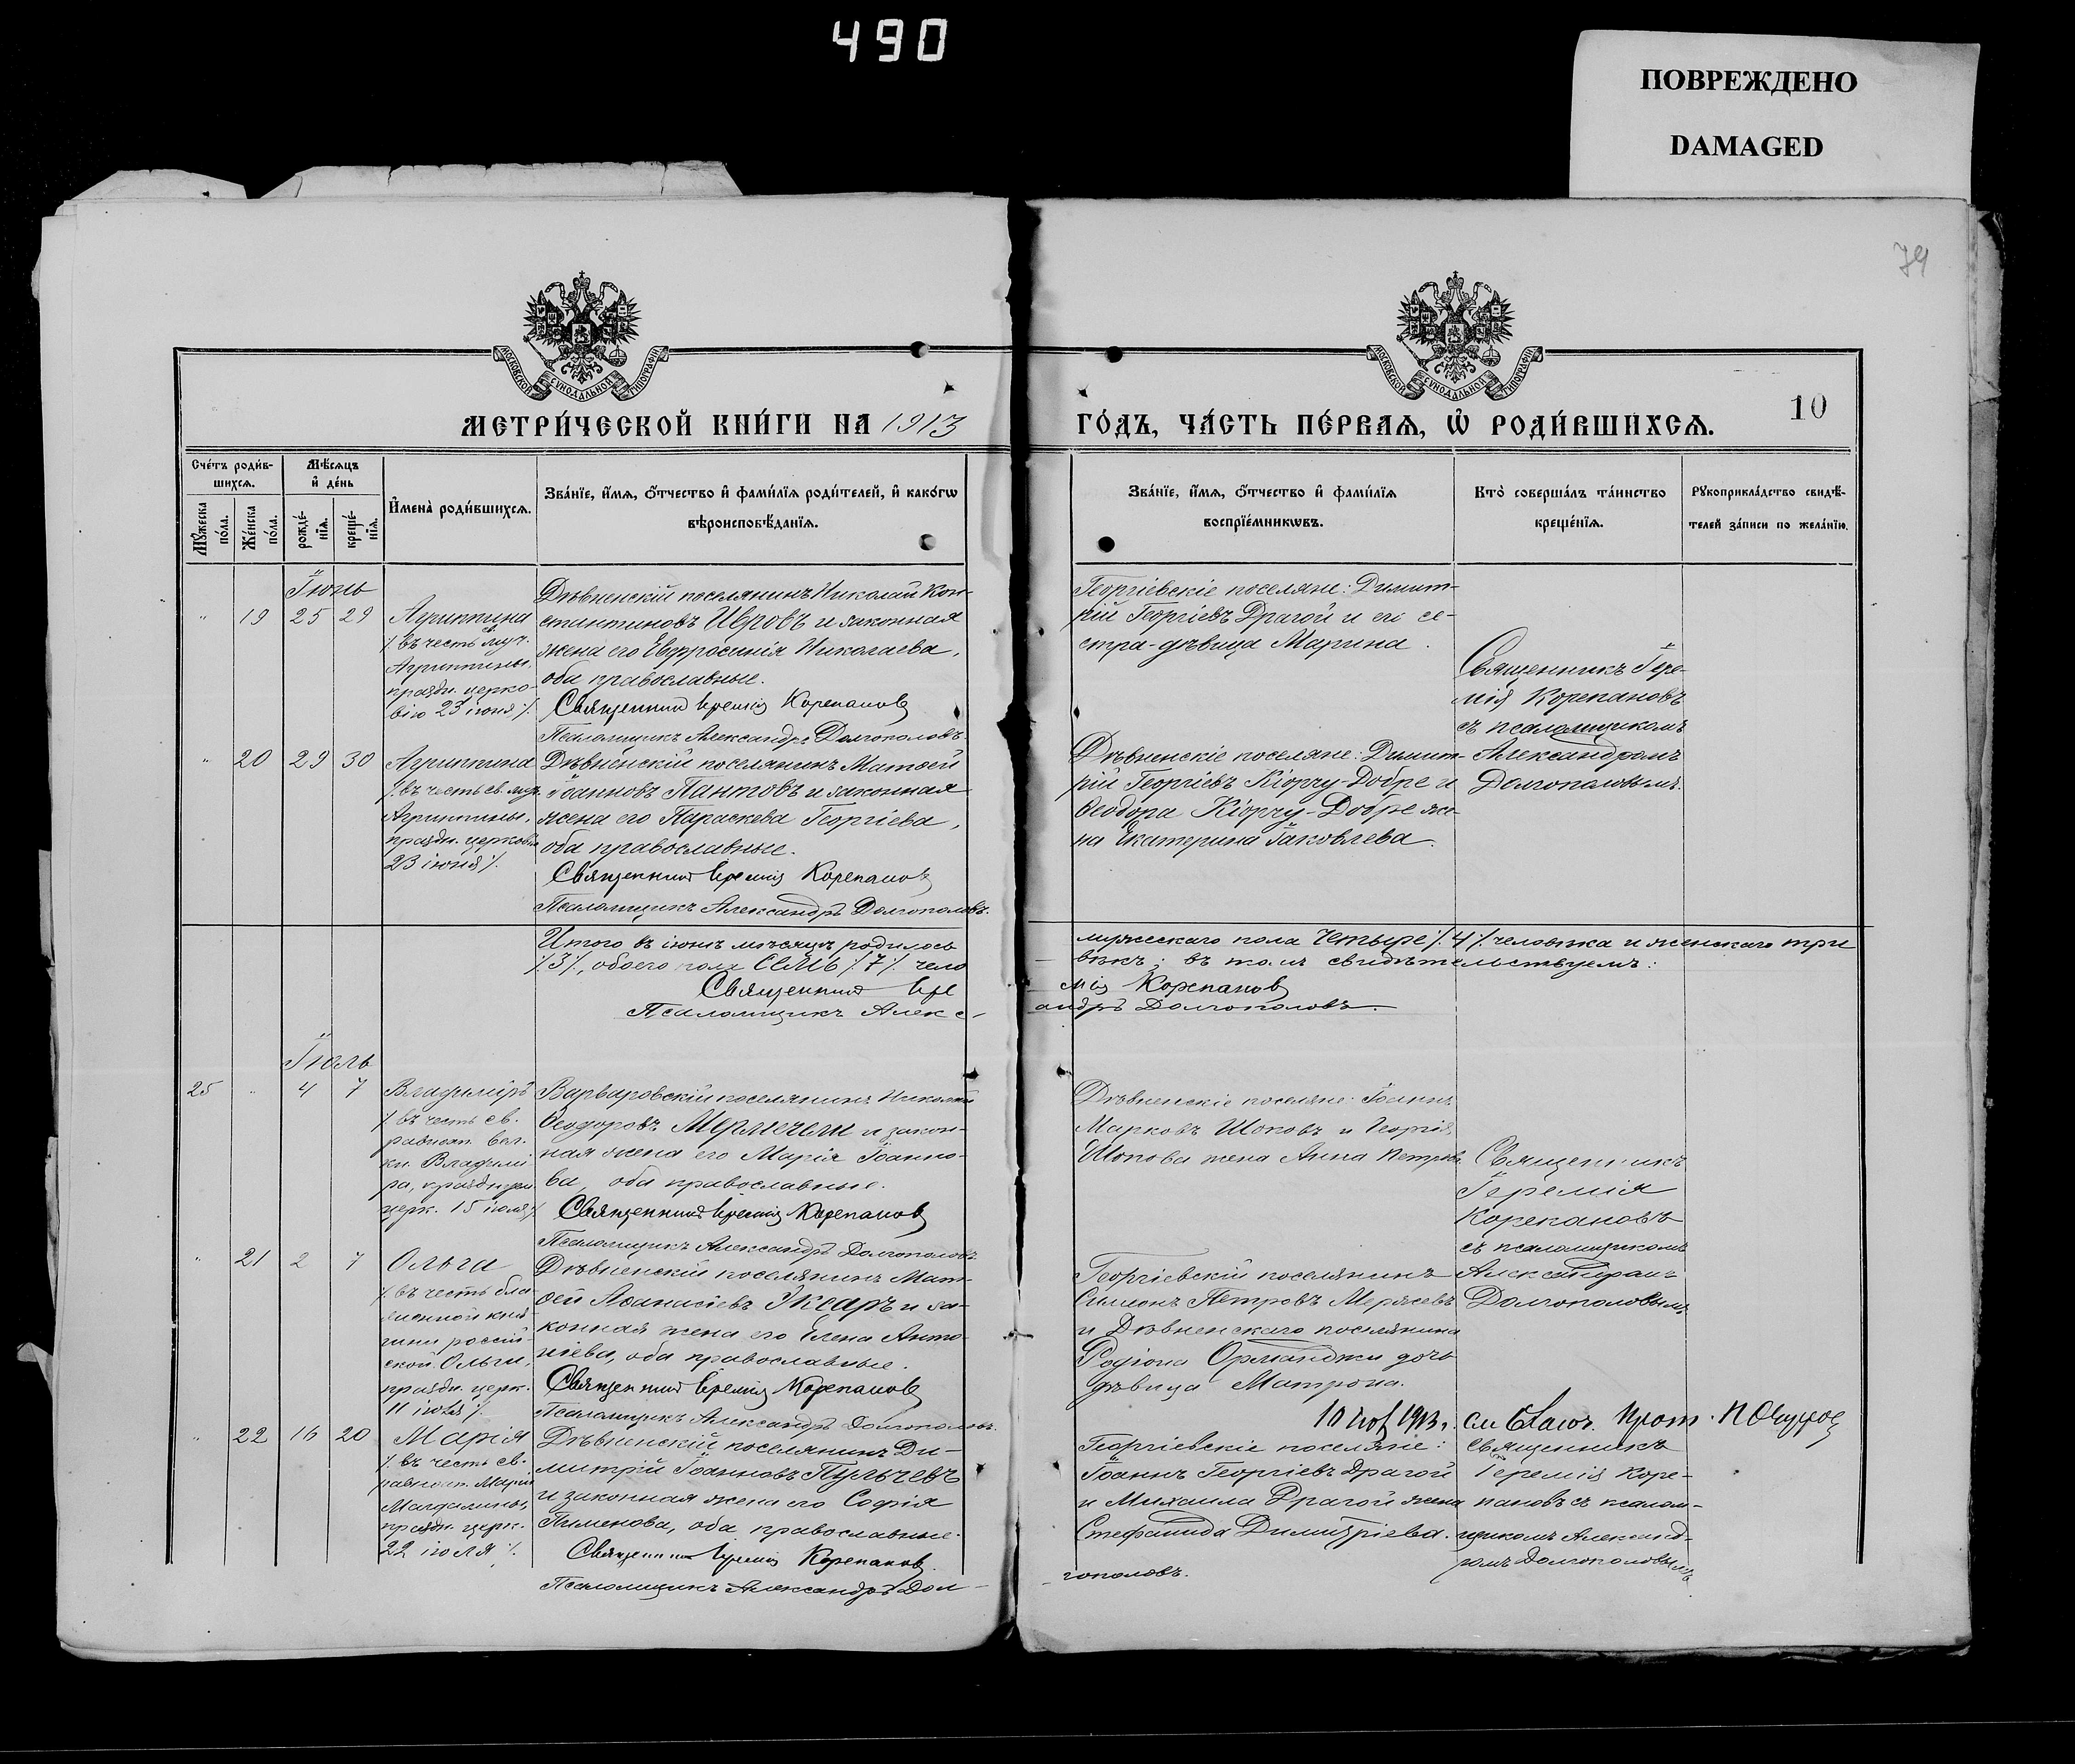 490
ПОВРЕЖДЕНО
DAMAGED
79
МОСКОВСКОЙ СѴНОДАЛЬНОЙ ТИПОГРАФІИ
МОСКОВСКОЙ СѴНОДАЛЬНОЙ ТИПОГРАФІИ
МЕТРИ́ЧЕСКОЙ КНИ́ГИ НА 1913
ГО́ДЪ, ЧА́СТЬ ПЕ́РВАѦ, Ѡ҆ РОДИ́ВШИХСѦ.
10
Сче́тъ роди́в-
шихсѧ.
Мꙋ́жеска
по́ла.
Же́нска
по́ла.
Мѣ́сѧцъ
и҆ де́нь
рожде́-
нїѧ.
креще́-
нїѧ.
И҆мена̀ роди́вшихсѧ.
Зва́нїе, и҆́мѧ, ѻ҆́тчество и҆ фами́лїѧ роди́телей, и҆ како́гѡ
вѣроисповѣ́данїѧ.
Зва́нїе, и҆́мѧ, ѻ҆́тчество и҆ фами́лїѧ
воспрїе́мникѡвъ.
Кто̀ соверша́лъ та́инство
креще́нїѧ.
Рꙋкоприкла́дство свидѣ́-
телей за́писи по жела́нїю.
Іюнь
" 19 25 29
Агриппина
/. въ честь св. муч.
Агриппины,
праздн. церко-
вію 23 іюня /.
Дѣвненскій поселянинъ Николай Кон-
стантиновъ Ивровъ и законная
жена его Евфросинія Николаева,
оба православные.
Священникъ Іеремія Корепановъ
Псаломщикъ Александръ Долгополовъ.
Георгіевскіе поселяне: Димит-
рій Георгіевъ Драгой и его се-
стра-дѣвица Марина.
Священникъ Іере-
мія Корепановъ
съ псаломщикомъ
Александромъ
Долгополовымъ.
" 20 29 30
Агриппина
/. въ честь св. муч.
Агриппины,
праздн. церковію
23 іюня /.
Дѣвненскій поселянинъ Матѳей
Іоанновъ Пантовъ и законная
жена его Параскева Георгіева,
оба православные.
Священникъ Іеремія Корепановъ
Псаломщикъ Александръ Долгополовъ.
Дѣвненскіе поселяне: Димит-
рій Георгіевъ Кіорчу-Добре и
Ѳеодора Кіорчу-Добре же-
на Екатерина Іаковлева.
Итого въ іюнѣ мѣсяцѣ родилось мужескаго пола четыре /. 4 /. человѣка и женскаго три
/. 3 /., обоего пола СЕМЬ /. 7 /. чело вѣкъ; въ томъ свидѣтельствуемъ:
Священникъ Іере мія Корепановъ
Псаломщикъ Алекс- андръ Долгополовъ.
Іюль
25 " 4 7
Владиміръ
/. въ честь св.
равноап. вел.
кн. Владимі-
ра, празднуем.
церк. 15 іюля /.
Варваровскій поселянинъ Николай
Ѳеодоровъ Мермечели и закон-
ная жена его Марія Іоанно-
ва, оба православные.
Священникъ Іеремія Корепановъ
Псаломщикъ Александръ Долгополовъ.
Дѣвненскіе поселяне: Іоаннъ
Марковъ Шоповъ и Георгія
Шопова жена Анна Петрова.
Священникъ
Іеремія
Корепановъ
съ псаломщикомъ
Александромъ
Долгополовымъ.
" 21 2 7
Ольга
/. въ честь бла-
женной кня-
гини россій-
ской Ольги,
праздн. церк.
11 іюля /.
Дѣвненскій поселянинъ Мат-
ѳей Аѳанасіевъ Экеаръ и за-
конная жена его Елена Анто-
ніева, оба православные.
Священникъ Іеремія Корепановъ
Псаломщикъ Александръ Долгополовъ.
Георгіевскій поселянинъ
Симеонъ Петровъ Мерясевъ
и Дѣвненскаго поселянина
Родіона Орманджи дочь
дѣвица Матрона.
" 22 16 20
Марія
/. въ честь св.
равноап. Маріи
Магдалины,
праздн. церк.
22 іюля /.
Дѣвненскій поселянинъ Ди-
митрій Іоанновъ Пульчевъ
и законная жена его Софія
Пименова, оба православные.
Священникъ Іеремія Корепановъ
Псаломщикъ Александръ Дол-
гополовъ.
10 1913 г. Прот.
Георгіевскіе поселяне:
Іоаннъ Георгіевъ Драгой
и Михаила Драгой жена
Стефанида Димитріева.
Священникъ
Іеремія Коре-
пановъ съ псалом-
щикомъ Александ-
ромъ Долгополовымъ